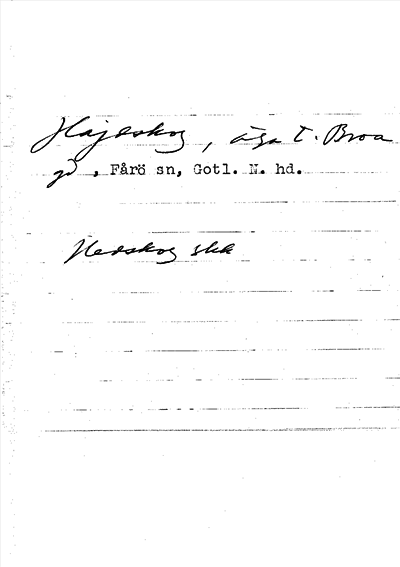 Hajdskog, äga t. Broa
gd, Fårö sn, Gotl. N. hd.
Hedskog skk